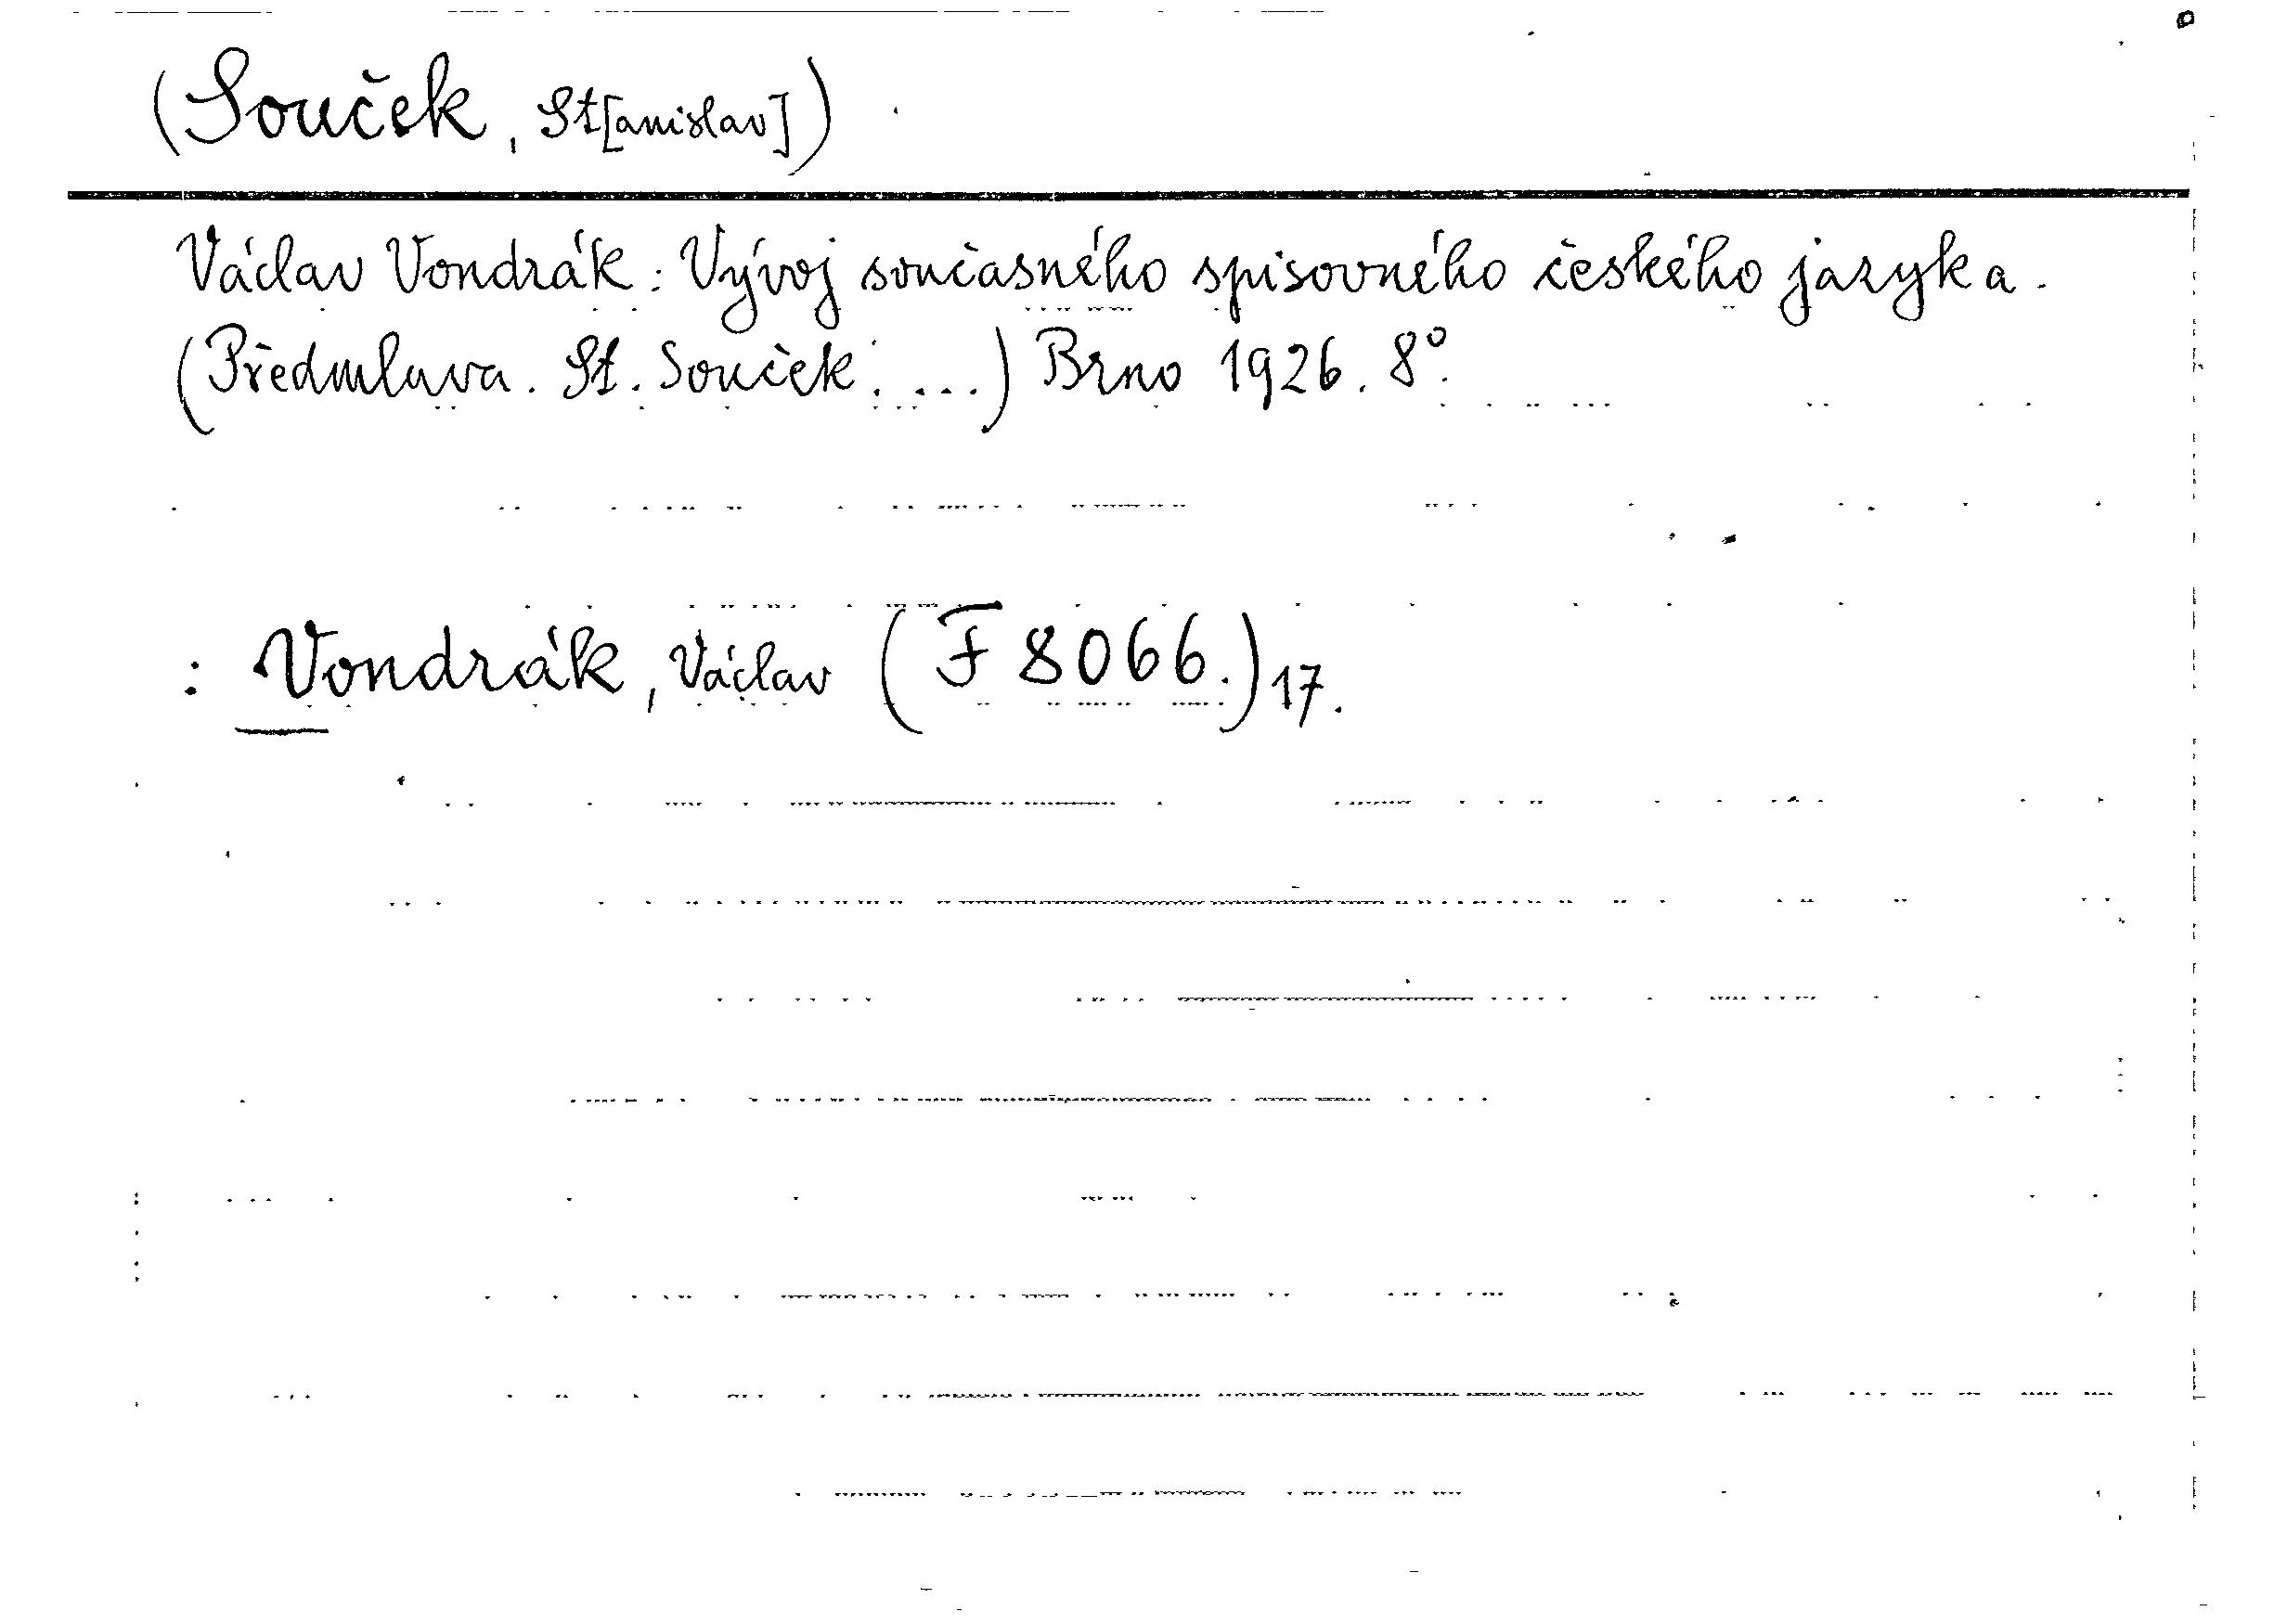 (Souček, St[anislav])
Václav Vondrák: Vývoj současného spisovného českého jazyka.
(Předmluva. St. Souček: ...) Brno 1926. 8°.
: Vondrák, Václav (F 8066.) 17.